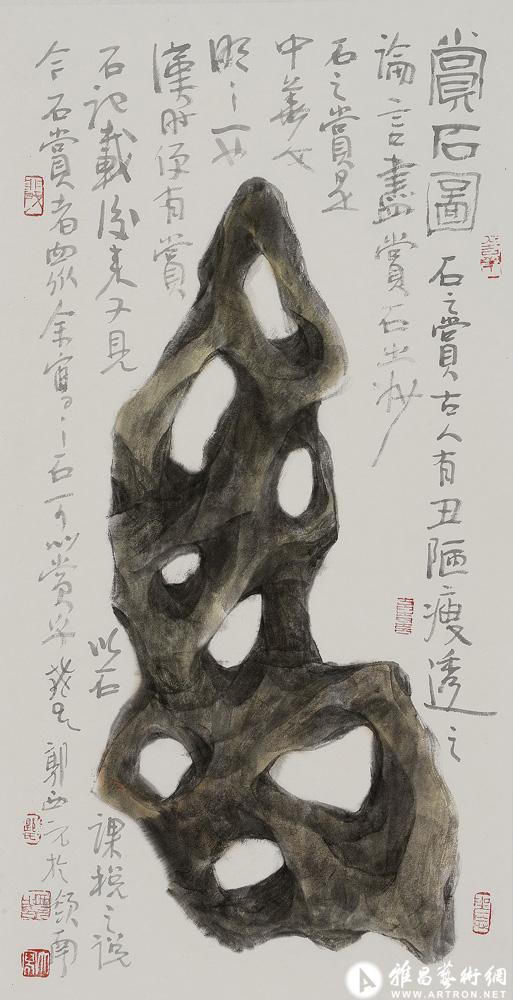 賞石圖 石之賞古人有丑陋瘦透之
論言盡賞石之妙
石之賞是
中華文
明之一也
漢時便有賞
石記載後來又見
以石
課税之説
今石賞者眾余寫之石可以賞乎 郭西元於嶺南
雅昌藝術網
WWW.ARTRON.NET